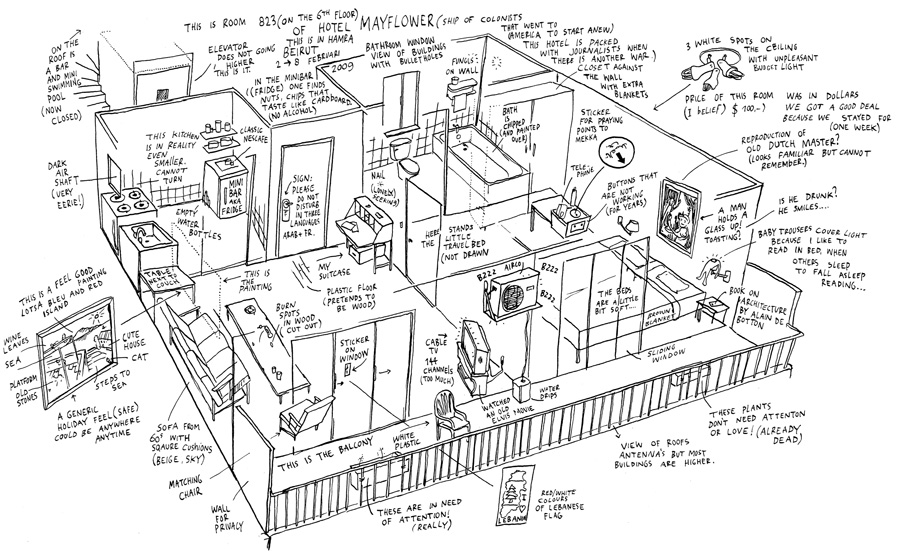 THIS IS ROOM 823 (ON THE 6TH FLOOR)
OF HOTEL MAYFLOWER (SHIP OF COLONISTS
THAT WENT TO
(AMERICA TO START ANEW)
THIS IS IN HAMRA
BEIRUT
2 → 8 FEBRUARI
2009
THIS HOTEL IS PACKED
WITH JOURNALISTS WHEN
THERE IS ANOTHER WAR.)
CLOSET AGAINST
THE WALL
WITH EXTRA
BLANKETS
ON THE
ROOF IS
A BAR
AND MINI
SWIMMING
POOL
(NOW
CLOSED)
ELEVATOR
DOES NOT GOING
HIGHER
THIS IS IT.
IN THE MINIBAR
((FRIDGE) ONE FINDS
NUTS, CHIPS THAT
TASTE LIKE CARDBOARD
(NO ALCOHOL)
BATHROOM WINDOW
VIEW OF BUILDINGS
WITH BULLETHOLES
FUNGUS
ON WALL
BATH
IS
CHIPPED
(AND PAINTED
OVER)
STICKER
FOR PRAYING
POINTS TO
MEKKA
3 WHITE SPOTS ON
THE CEILING
WITH UNPLEASANT
BUDGET LIGHT
PRICE OF THIS ROOM WAS IN DOLLARS
(I BELIEF) $ 100,-) WE GOT A GOOD DEAL
BECAUSE WE STAYED FOR
(ONE WEEK)
REPRODUCTION OF
OLD DUTCH MASTER?
(LOOKS FAMILIAR BUT CANNOT
REMEMBER.)
A MAN
HOLDS A
GLASS UP!
TOASTING!
IS HE DRUNK?
HE SMILES....
BABY TROUSERS COVER LIGHT
BECAUSE I LIKE TO
READ IN BED, WHEN
OTHERS SLEEP
TO FALL ASLEEP
READING...
BOOK ON
ARCHITECTURE
BY ALAIN DE
BOTTON
THIS KITCHEN
IS IN REALITY
EVEN
SMALLER.
CANNOT
TURN
CLASSIC
NESCAFE
MINI
BAR
AKA
FRIDGE
DARK
AIR
SHAFT
(VERY
EERIE!)
EMPTY
WATER
BOTTLES
SIGN:
PLEASE
DO NOT
DISTURE
IN THREE
LANGUAGES
ARAB + FR.
NAIL
+
(LONELY
TELE-
PHONE
BUTTONS THAT
ARE NOT
WORKING
(FOR YEARS)
HERE
THE
STANDS
LITTLE
TRAVEL BED
(NOT DRAWN
TABLE
NEXT TO
COUCH
THIS IS
THE
PAINTING
MY
SUITCASE
PLASTIC FLOOR
(PRETENDS TO
BE WOOD)
BURN
SPOTS
IN WOOD
(CUT OUT)
STICKER
ON
WINDOW
B222
AIRCO
B222
B222
THE BEDS
ARE A LITTLE
BIT SOFT...
BROWN
BLANKET
SLIDING
WINDOW
CABLE
TV
144
CHANNELS
(TOO MUCH)
WATCHED
AN OLD
ELVIS MOVIE
WATER
DRIPS
THIS IS A FEEL GOOD
LOTSA BLEU PAINTING
ISLAND AND RED
WINE
LEAVES
SEA
PLATFORM
OLD
STONES
CUTE
HOUSE
CAT
STEPS TO
SEA
A GENERIC
HOLIDAY FEEL (SAFE)
COULD BE ANYWHERE
ANYTIME
SOFA FROM
60S WITH
SQAURE CUSHIONS
(BEIGE, SKY)
MATCHING
CHAIR
WALL
FOR
PRIVACY
THIS IS THE BALCONY
WHITE
PLASTIC
THESE ARE IN NEED
OF ATTENTION!
(REALLY)
LEBANON
RED/WHITE
COLOURS
OF LEBANESE
FLAG
VIEW OF ROOFS
ANTENNA'S BUT MOST
BUILDINGS ARE HIGHER..
THESE PLANTS
DON'T NEED ATTENTON
OR LOVE! (ALREADY
DEAD)